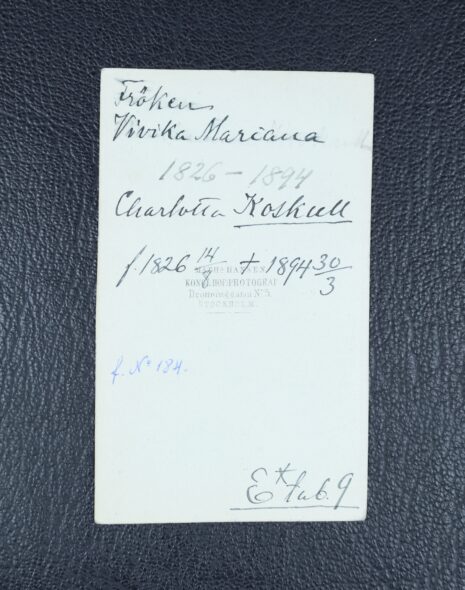 Fröken
Vivika Mariana
1826 - 1894
Charlotta Koskull
f. 1826 14/8 + 1894 30/3
HANSEN
KONGL. HOF-PHOTOGRAF
Drottninggatan No 5.
STOCKHOLM.
f. No 184.
E* tab. 9